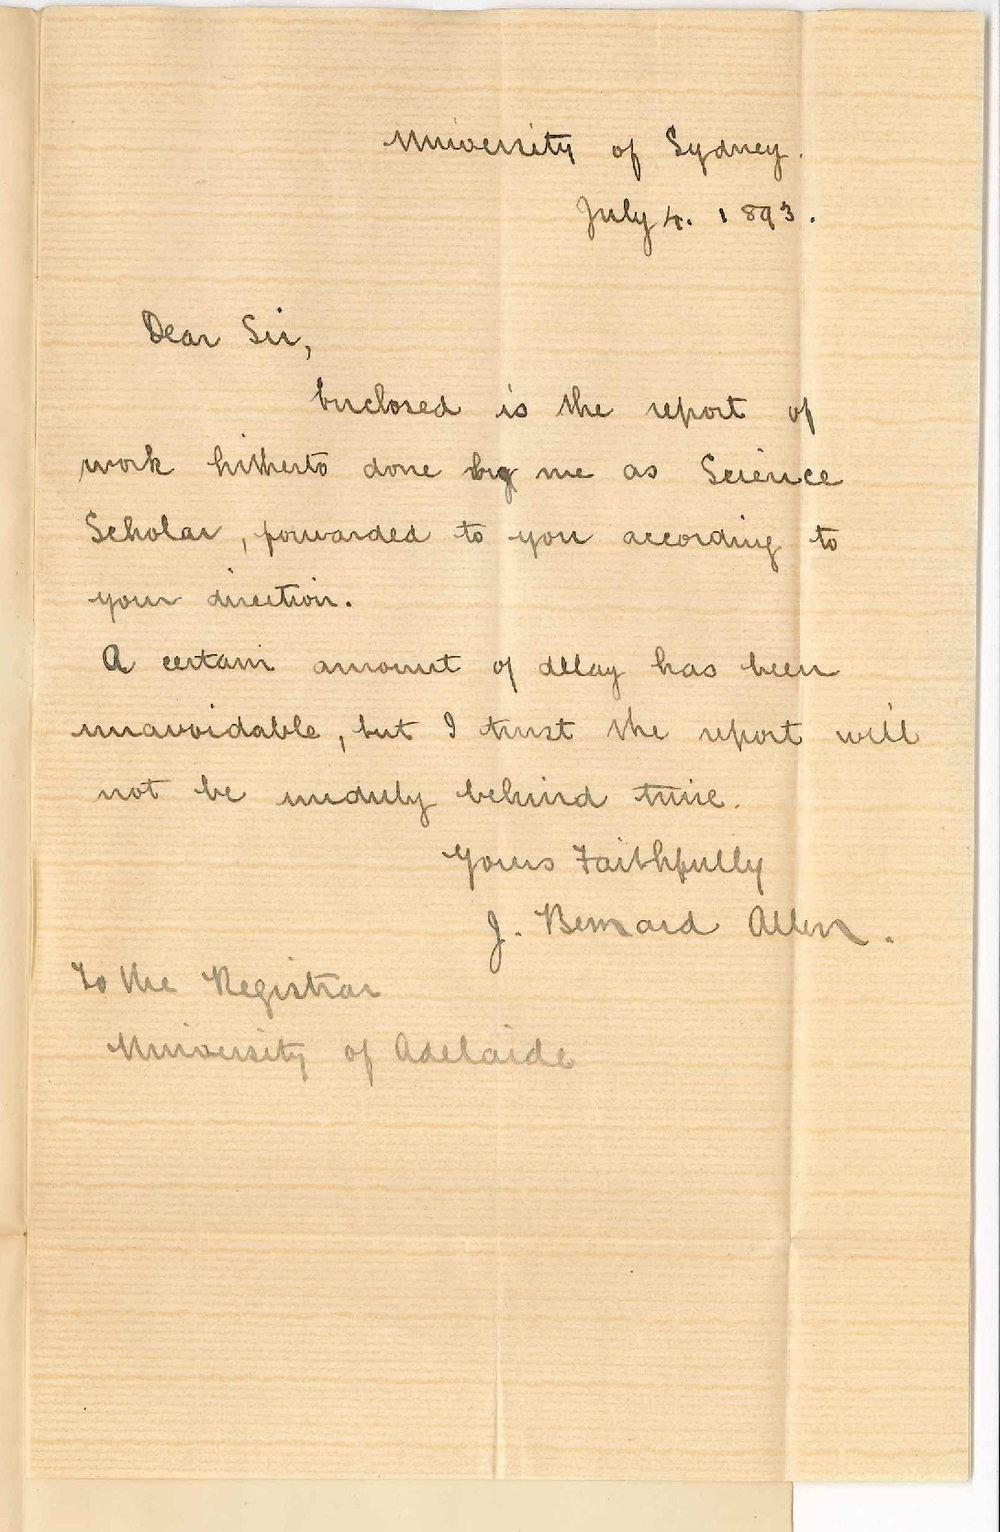 University of Sydney.
July 4. 1893.
Dear Sir,
Enclosed is the report of
work hitherto done by me as Science
Scholar, forwarded to you according to
your direction.
A certain amount of delay has been
unavoidable, but I trust the report will
not be unduly behind time.
Yours Faithfully
J. Bernard Allen.
To the Registrar
University of Adelaide